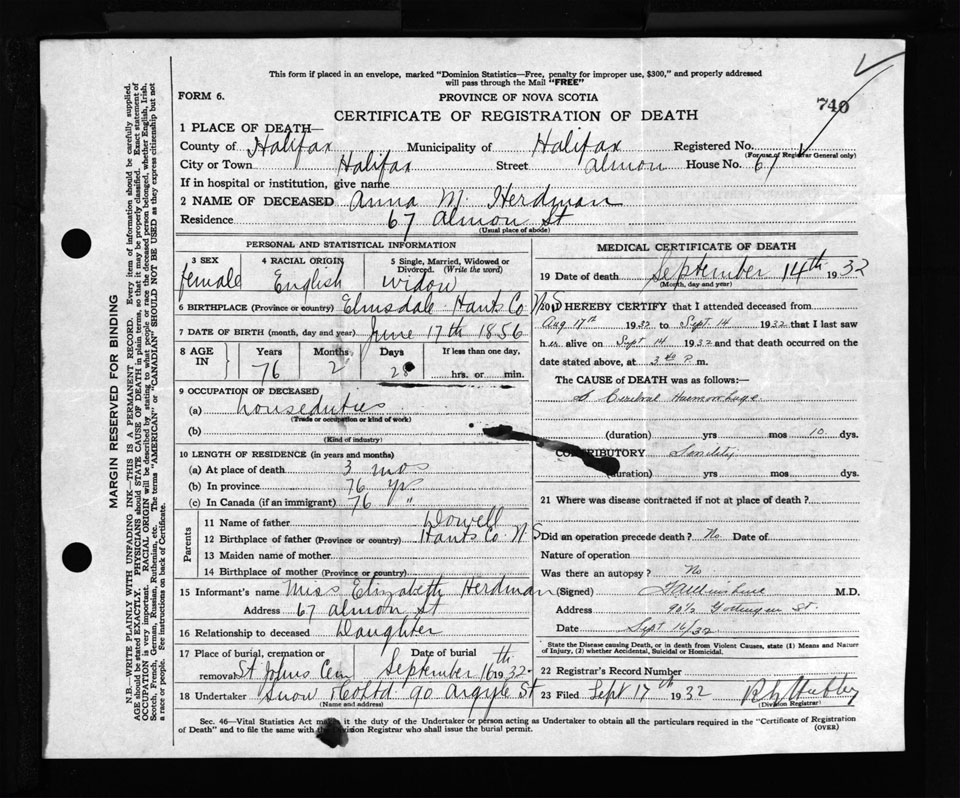 This form if placed in an envelope, marked "Dominion Statistics—Free, penalty for improper use, $300," and properly addressed
will pass through the Mail "FREE"
FORM 6.
PROVINCE OF NOVA SCOTIA
740
CERTIFICATE OF REGISTRATION OF DEATH
1 PLACE OF DEATH—
County of Halifax Municipality of Halifax Registered No.
(For use of Registrar General only)
City or Town Halifax Street Almon House No. 67
If in hospital or institution, give name
2 NAME OF DECEASED Anna M. Herdman
Residence 67 Almon St
(Usual place of abode)
PERSONAL AND STATISTICAL INFORMATION
3 SEX 4 RACIAL ORIGIN 5 Single, Married, Widowed or
Divorced. (Write the word)
female English widow
6 BIRTHPLACE (Province or country) Elmsdale Hants Co N S
7 DATE OF BIRTH (month, day and year) June 17th 1856
8 AGE IN Years Months Days If less than one day,
76 2 28 hrs. or min.
9 OCCUPATION OF DECEASED
(a) houseduties
(Trade or occupation or kind of work)
(b)
(Kind of industry)
10 LENGTH OF RESIDENCE (in years and months)
(a) At place of death 3 mos
(b) In province 76 yrs
(c) In Canada (if an immigrant) 76 "
Parents
11 Name of father Dowell
12 Birthplace of father (Province or country) Hants Co. N S
13 Maiden name of mother
14 Birthplace of mother (Province or country)
15 Informant's name Miss Elizabeth Herdman
Address 67 Almon St
16 Relationship to deceased Daughter
17 Place of burial, cremation or Date of burial
removal St Johns Cem September 16th 1932
18 Undertaker Snow & Co Ltd 90 Argyle St
(Name and address)
MEDICAL CERTIFICATE OF DEATH
19 Date of death September 14th 1932
(Month, day and year)
20 I HEREBY CERTIFY that I attended deceased from
Aug 17th 1932 to Sept. 14 1932 that I last saw
her alive on Sept 14 1932 and that death occurred on the
date stated above, at 3 P. m.
The CAUSE of DEATH was as follows:—
Cerebral Haemorrhage
(duration) yrs mos 10 dys.
CONTRIBUTORY
(duration) yrs mos dys.
21 Where was disease contracted if not at place of death?
Did an operation precede death? No Date of
Nature of operation
Was there an autopsy? No
(Signed) M.D.
Address 90½ Gottingen St.
Date Sept 16/32
State the Disease causing Death, or in death from Violent Causes, state (1) Means and Nature
of Injury, (2) whether Accidental, Suicidal or Homicidal.
22 Registrar's Record Number
23 Filed Sept 17th 1932
(Division Registrar)
Sec. 46—Vital Statistics Act makes it the duty of the Undertaker or person acting as Undertaker to obtain all the particulars required in the "Certificate of Registration
of Death" and to file the same with the Division Registrar who shall issue the burial permit.
(OVER)
MARGIN RESERVED FOR BINDING
N.B.—WRITE PLAINLY WITH UNFADING INK—THIS IS A PERMANENT RECORD. Every item of information should be carefully supplied.
AGE should be stated EXACTLY. PHYSICIANS should STATE CAUSE OF DEATH in plain terms, so that it may be properly classified. Exact statement of
OCCUPATION is very important. RACIAL ORIGIN will be described by stating to what people or race the deceased person belonged, whether English, Irish,
Scotch, French, German, Russian, Ruthenian, etc. The terms "AMERICAN" or "CANADIAN" SHOULD NOT BE USED as they express citizenship but not
a race or people. See instructions on back of Certificate.